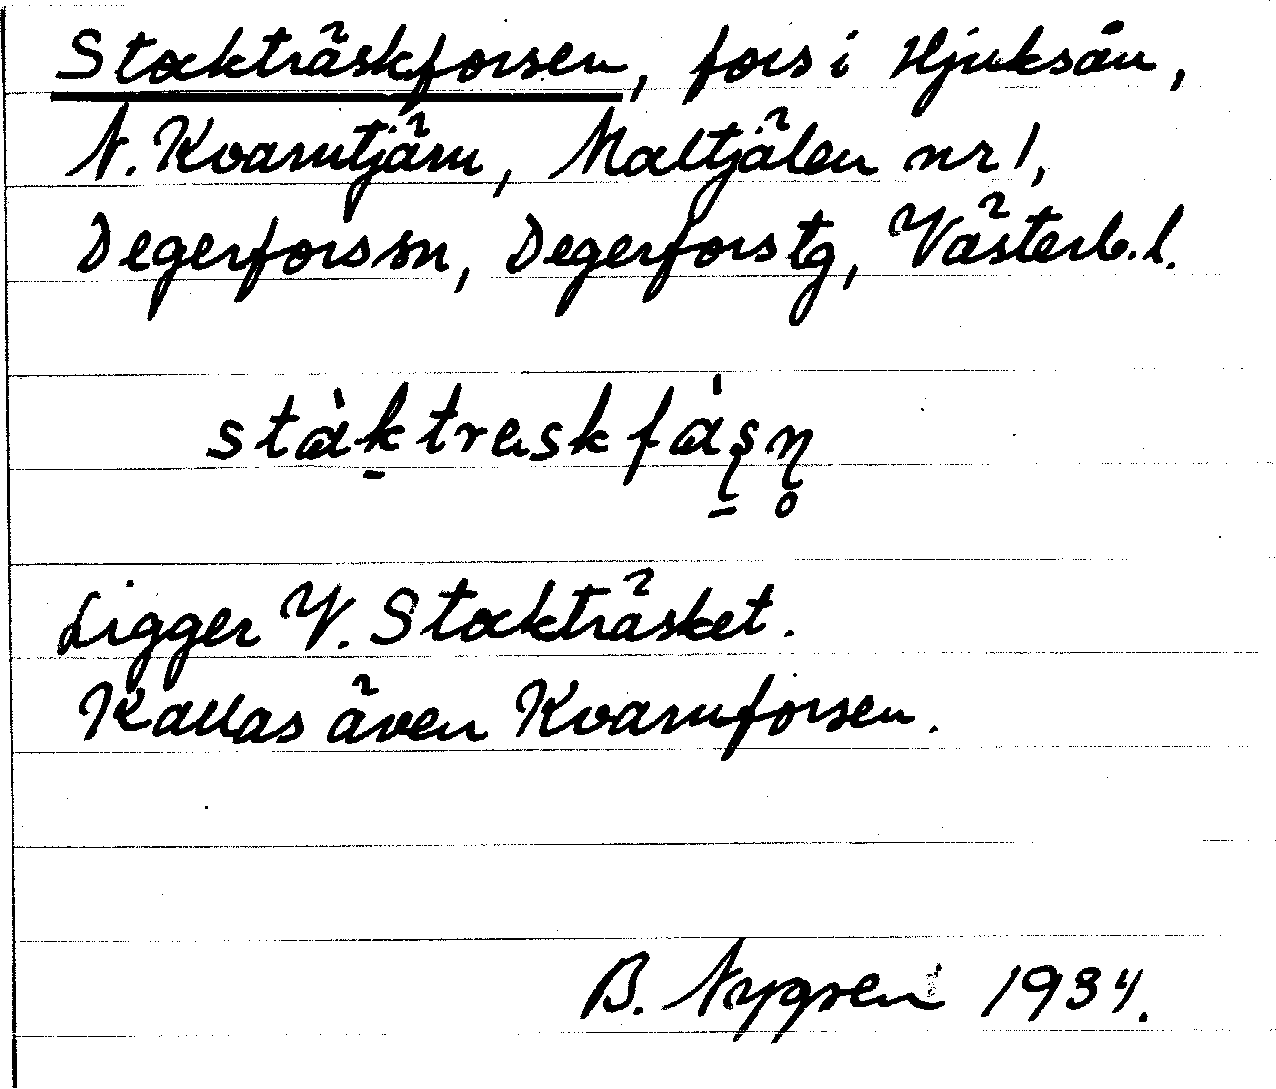 Stockträskforsen, fors i Hjuksån,
N. Kvarntjärn, Maltjälen nr 1,
Degerfors sn, Degerfors tg, Västerb. l.
stàk̠traskfàs̢̠n̢̥
Ligger V. Stockträsket.
Kallas även Kvarnforsen.
B. Nygren 1934.